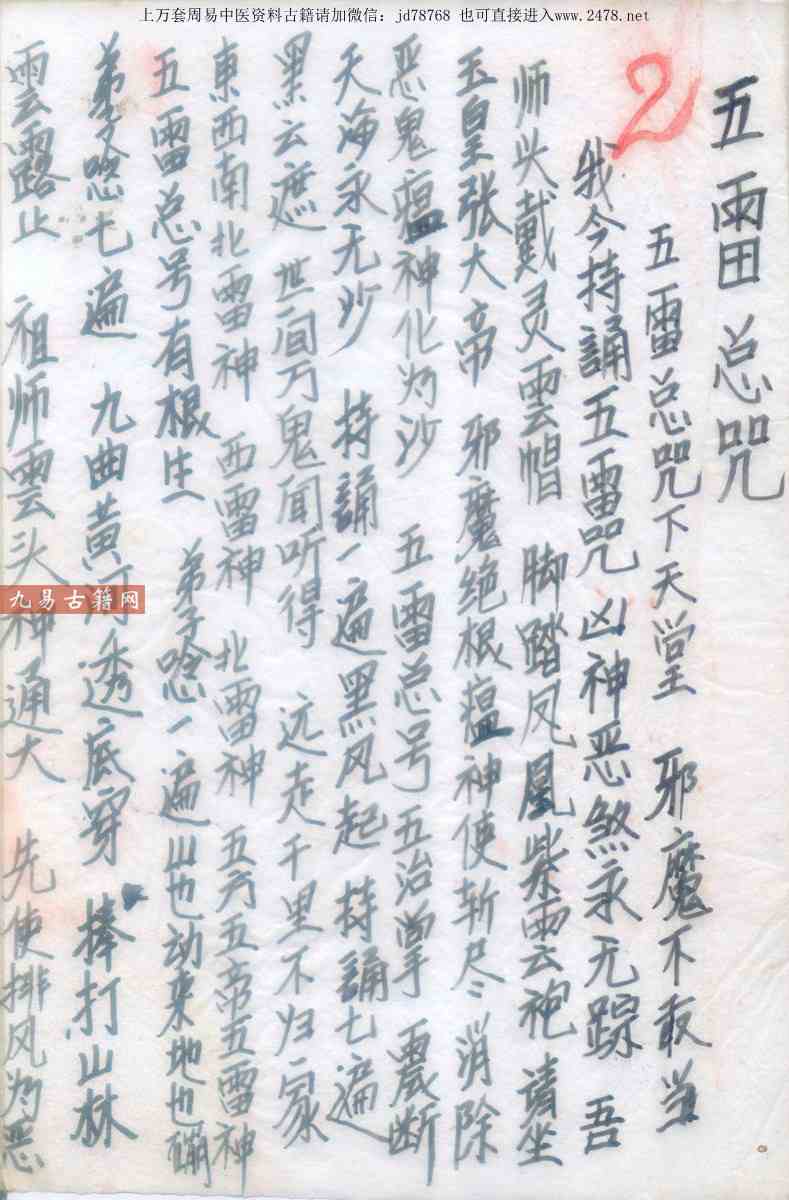 上万套周易中医资料古籍请加微信：jd78768 也可直接进入www.2478.net
五雷总咒
2
五雷总咒下天堂 邪魔不敢当
我今持誦五雷咒 凶神恶煞永无踪 吾
师头戴灵雲帽 脚踏凤凰紫雲云袍 请坐
玉皇张大帝 邪魔绝根瘟神使斩尽 消除
恶鬼瘟神化为沙 五雷总号五治掌 震断
天海永无沙 持誦一遍黑风起 持誦七遍
黑云遮 世间万鬼闻听得 远走千里不归家
東西南北雷神 西雷神 北雷神 五方五帝五雷神
五雷总号有根生 弟子唸一遍山也动来地也崩
弟子唸七遍 九曲黄河透底穿 捧打山林
雲露止 祖师雲头神通大 先使排风为恶
九易古籍网